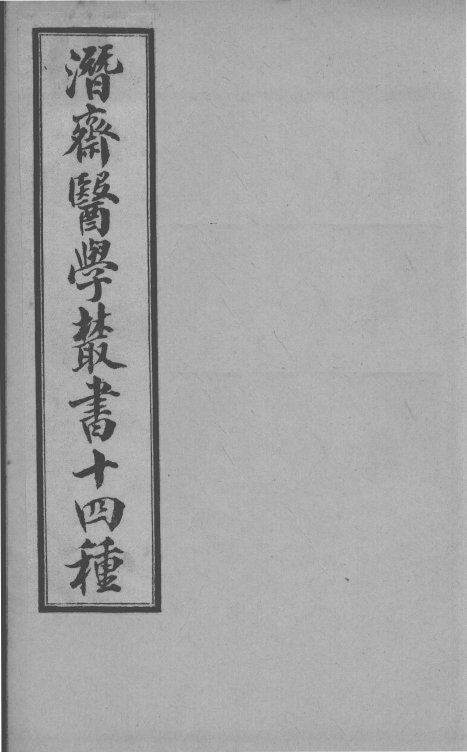 潛齋醫學叢書十四種